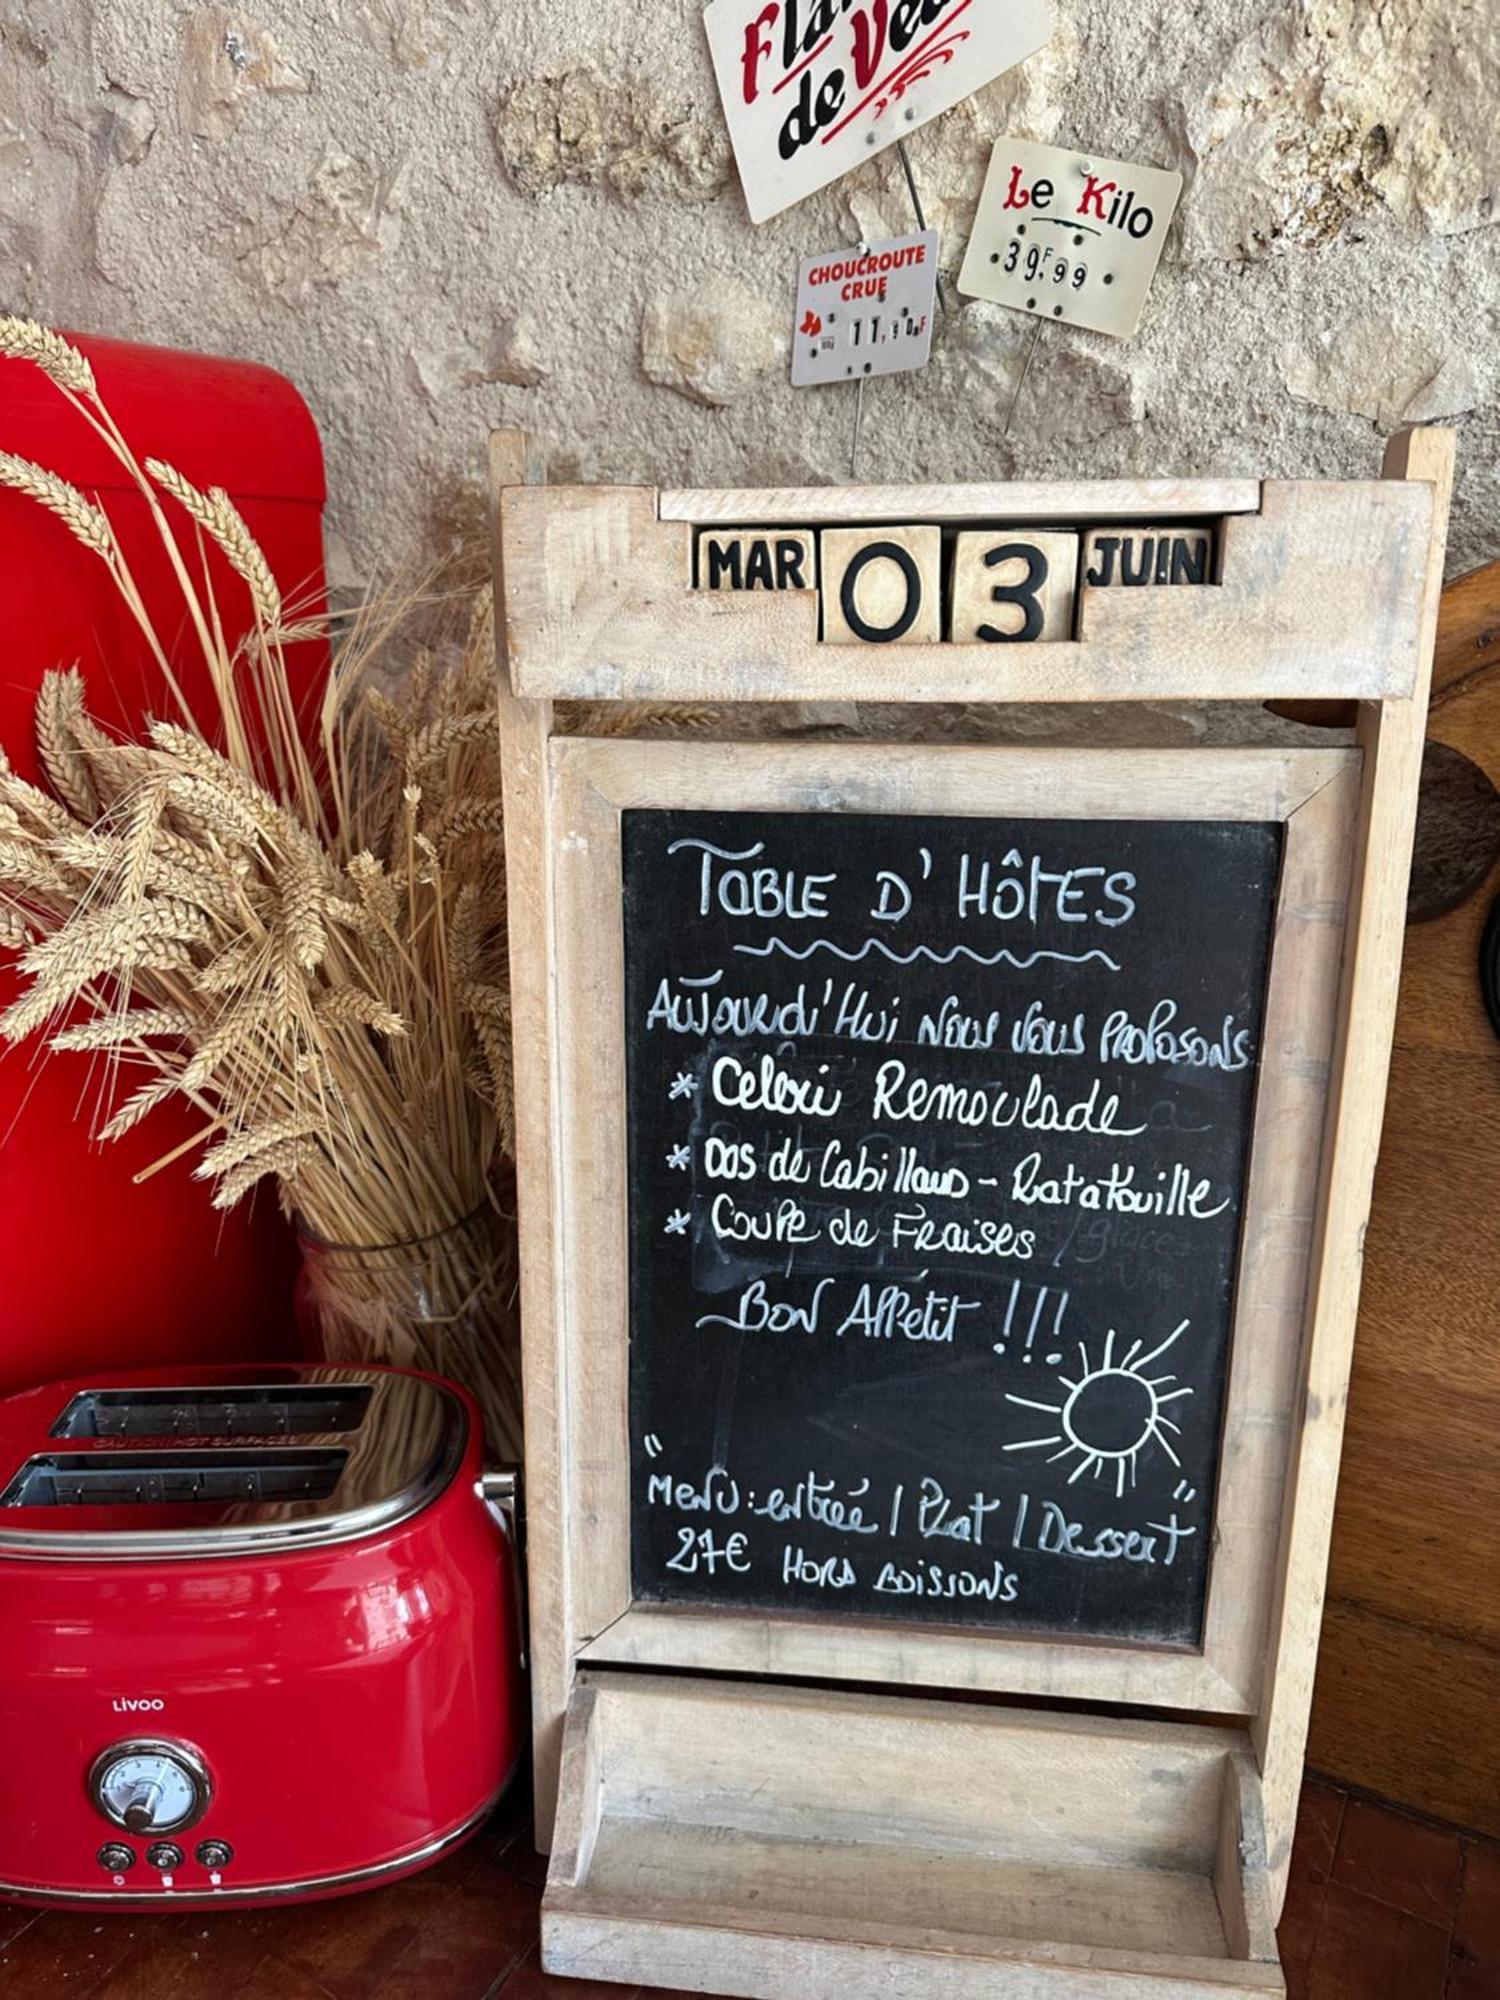 de
Le Kilo
39F,99
CHOUCROUTE
CRUE
11,90F
MAR 03 JUIN
TABLE D'HÔTES
AUJOURD'HUI NOUS VOUS PROPOSONS
* Celeri Remoulade
* Dos de Cabillaud - Ratatouille
* Coupe de Fraises
BON APPÉTIT !!!
"MENU: entrée / Plat / Dessert"
27€ HORS BOISSONS
CAUTION HOT SURFACES
LIVOO